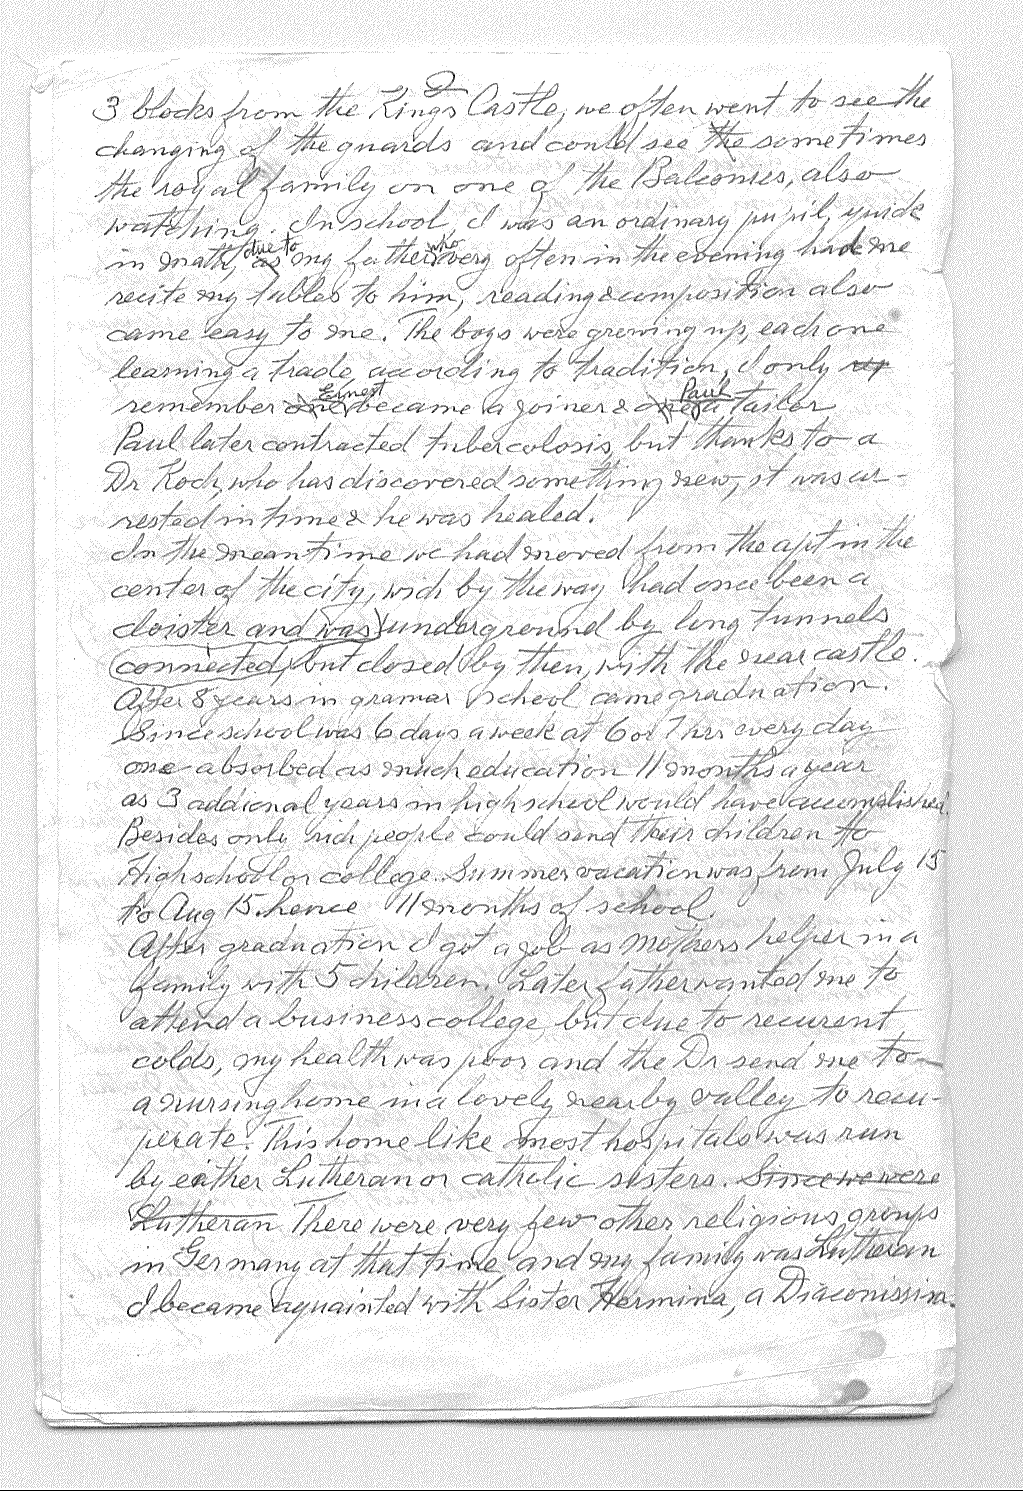 2
3 blocks from the Kings Castle, we often went to see the
changing of the guards and could see the sometimes
the royal family on one of the Balconies, also
watching. In school, I was an ordinary pupil, quick
in math, as due to my father who very often in the evening had me
recite my tables to him, reading & composition also
came easy to me. The boys were growing up, each one
learning a trade, according to tradition, I only
remember one Ernest became a joiner & one Paul a tailor
Paul later contracted tubercolosis, but thanks to a
Dr Koch, who has discovered something new, it was ar-
rested in time & he was healed.
In the meantime we had moved from the apt in the
center of the city, wich by the way had once been a
cloister and was underground by long tunnels
connected, but closed by then, with the near castle.
After 8 years in gramar school came graduation.
Since school was 6 days a week at 6 or 7 hrs every day
one absorbed as much education 11 months a year
as 3 addional years in high school would have accomplished.
Besides only rich people could send their children to
Highschool or college. Summer vacation was from July 15
to Aug 15. hence 11 months of school.
After graduation I got a job as mothers helper in a
family with 5 children. Later father wanted me to
attend a business college, but due to recurent
colds, my health was poor and the Dr send me to
a nursing home in a lovely nearby valley to recu-
perate. This home like most hospitals was run
by either Lutheran or catholic sisters. Since we were
Lutheran There were very few other religious groups
in Germany at that time and my family was Lutheran
I became aquainted with Sister Hermina, a Diaconissin.